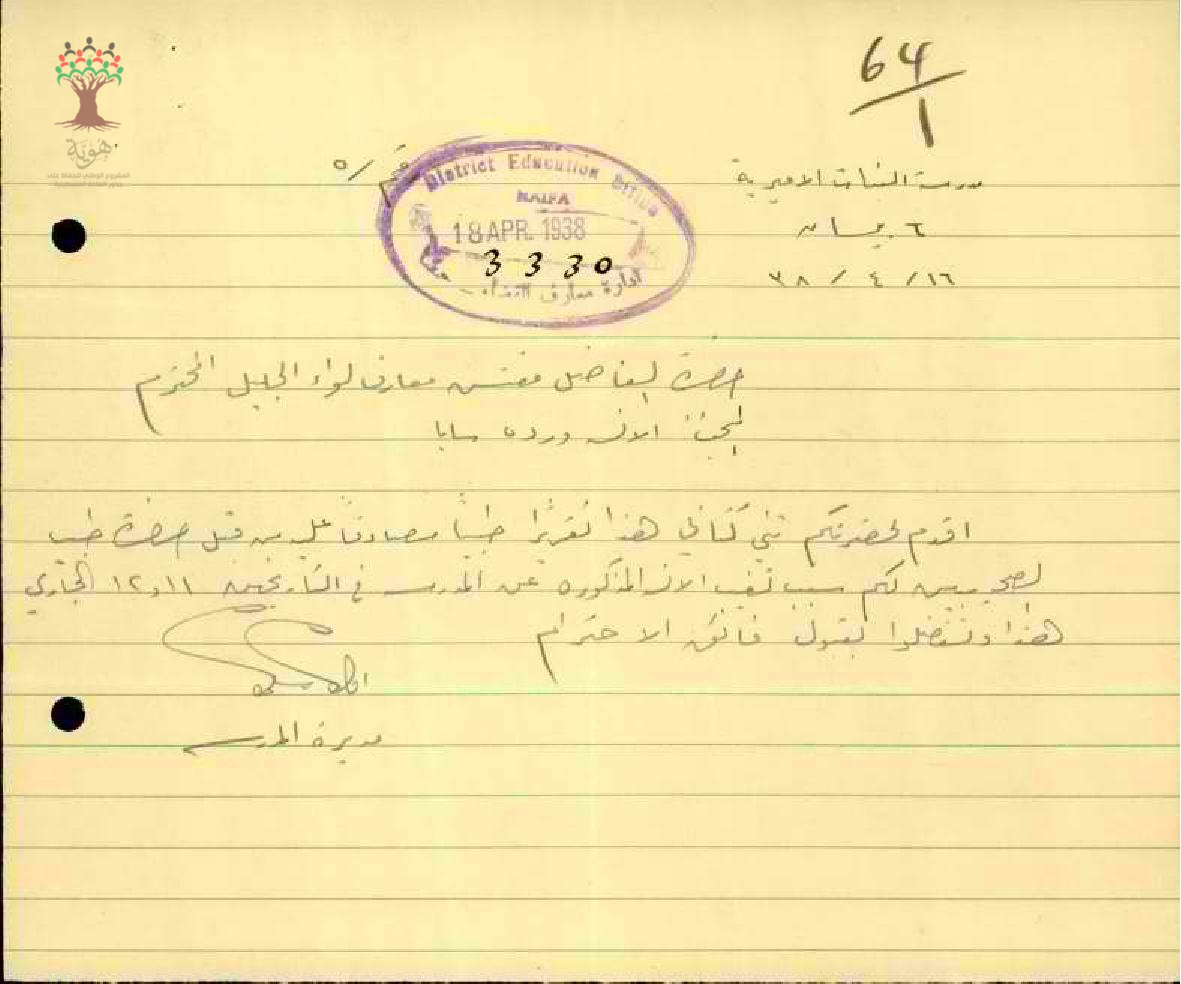 64/1
هُويّة
المشروع الوطني للحفاظ على
جذور العائلة الفلسطينية
رقم / ٥
District Education Office
HAIFA
18 APR. 1938
3330
ادارة معارف القضاء - حيفا
مدرسة البنات الاميرية
بيسان
١٦ / ٤ / ٣٨
حضرة الفاضل مفتش معارف لواء الجليل المحترم
المبحث: الانسه ورده سابا
اقدم لحضرتكم طي كتابي هذا تقريرًا طبيًا مصادقًا عليه من قبل حضرة طبيب
الصحه يبين لكم سبب تغيب الانسه المذكوره عن المدرسه في التاريخين ١١ و ١٢ الجاري
هذا وتفضلوا بقبول فائق الاحترام
مديرة المدرسه